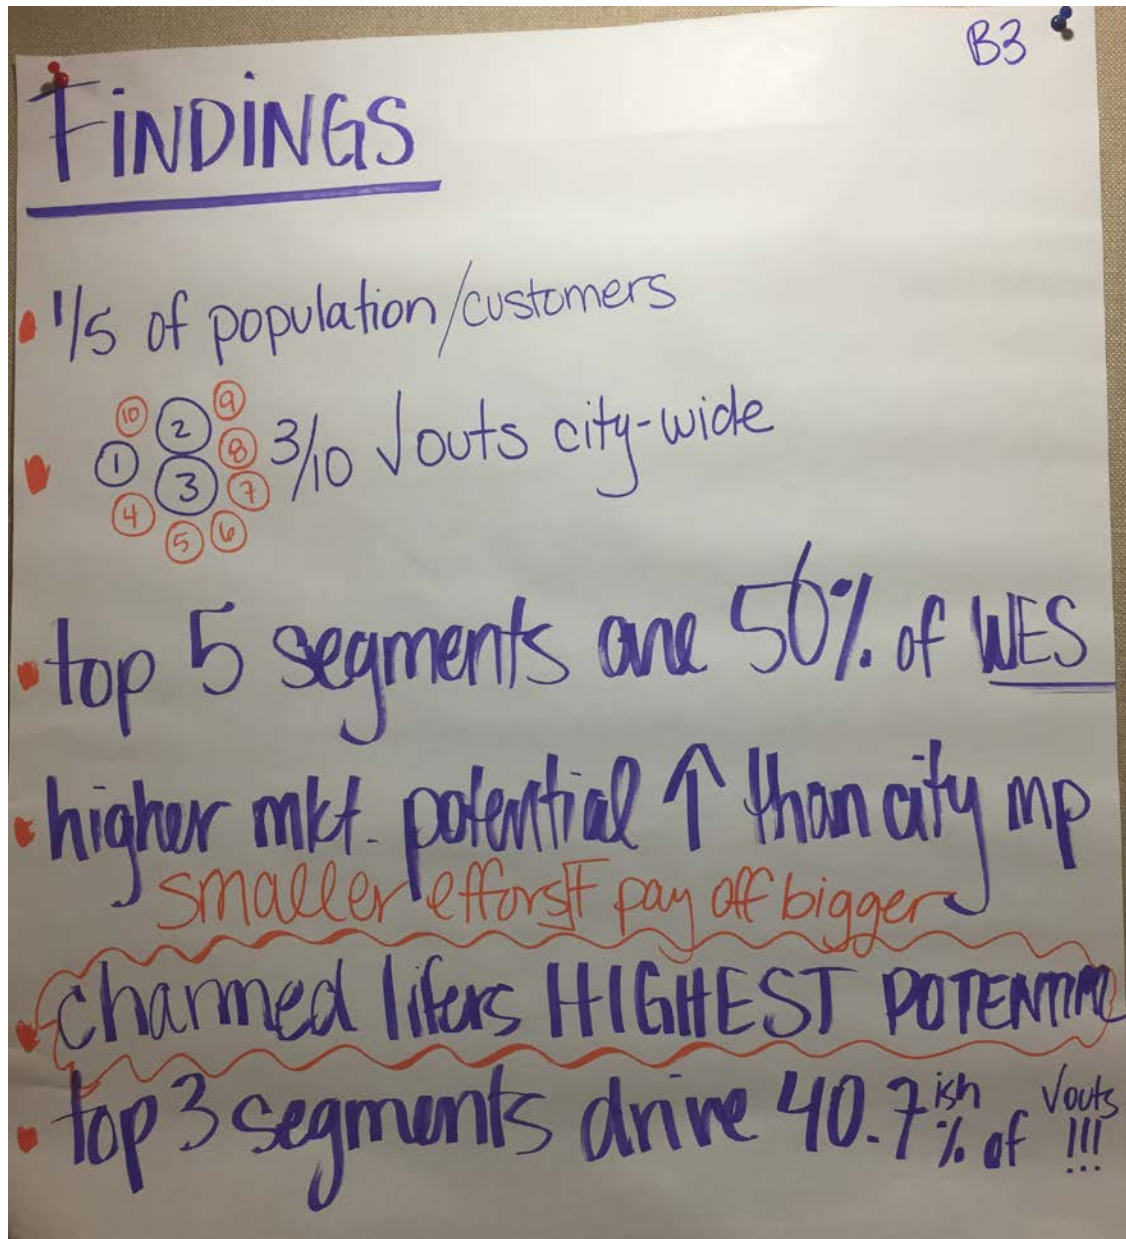 B3
FiNDiNGS
1/5 of population/customers
10 2 9
1 8
3 7
4 5 6
3/10 √outs city-wide
top 5 segments are 56% of WES
higher mkt. potential ↑ than city mp
smaller efforst pay off bigger
charmed lifers HIGHEST POTENTIAL
top 3 segments drive 40.7ish % of √outs !!!